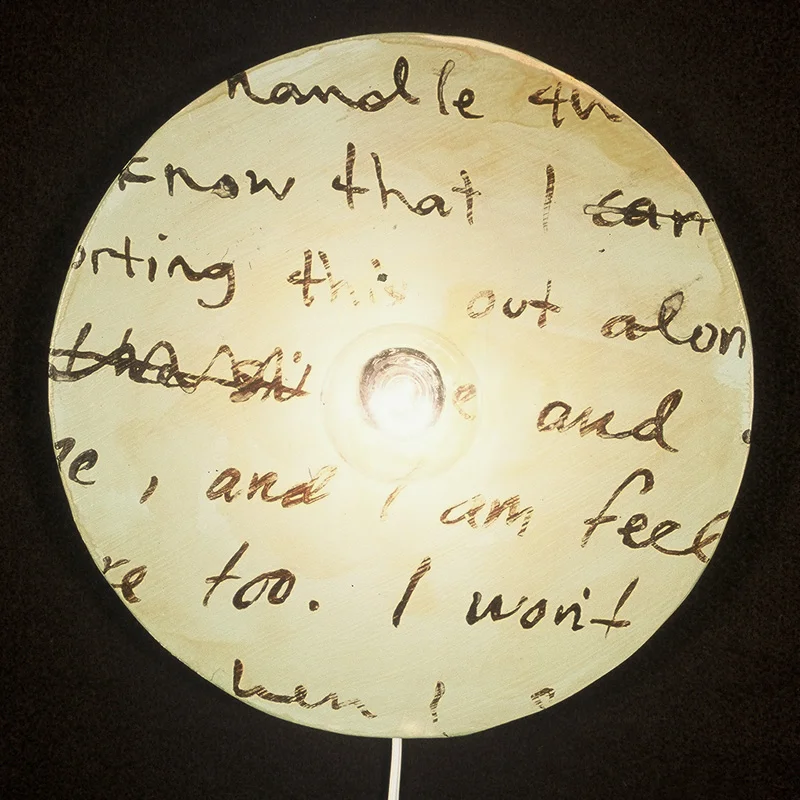 handle
know that I can
orting this out alon
and
, and I am feel
too. I won't
I